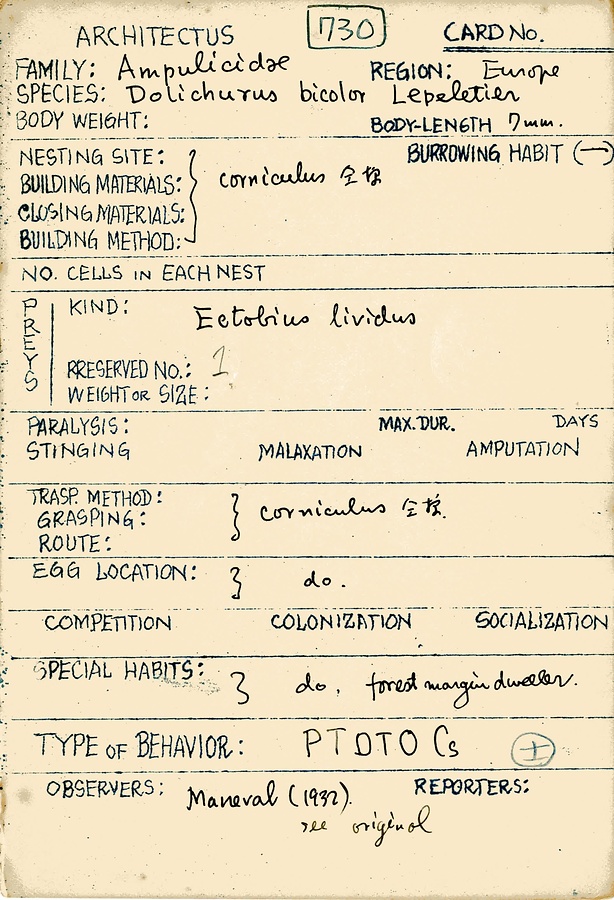 ARCHITECTUS 730 CARD No.
FAMILY: Ampulicidae REGION: Europe
SPECIES: Dolichurus bicolor Lepeletier
BODY WEIGHT: BODY-LENGTH 7mm.
NESTING SITE: BURROWING HABIT (—)
BUILDING MATERIALS: corniculus 全様
CLOSING MATERIALS:
BUILDING METHOD:
NO. CELLS IN EACH NEST
PREYS KIND: Ectobius lividus
RRESERVED NO.: 1
WEIGHT OR SIZE:
PARALYSIS: MAX. DUR. DAYS
STINGING MALAXATION AMPUTATION
TRASP. METHOD:
GRASPING: corniculus 全様
ROUTE:
EGG LOCATION: do.
COMPETITION COLONIZATION SOCIALIZATION
SPECIAL HABITS: do, forest margin dweller.
TYPE OF BEHAVIOR: PTDTO Cs +
OBSERVERS: Maneval (1932). REPORTERS:
see original